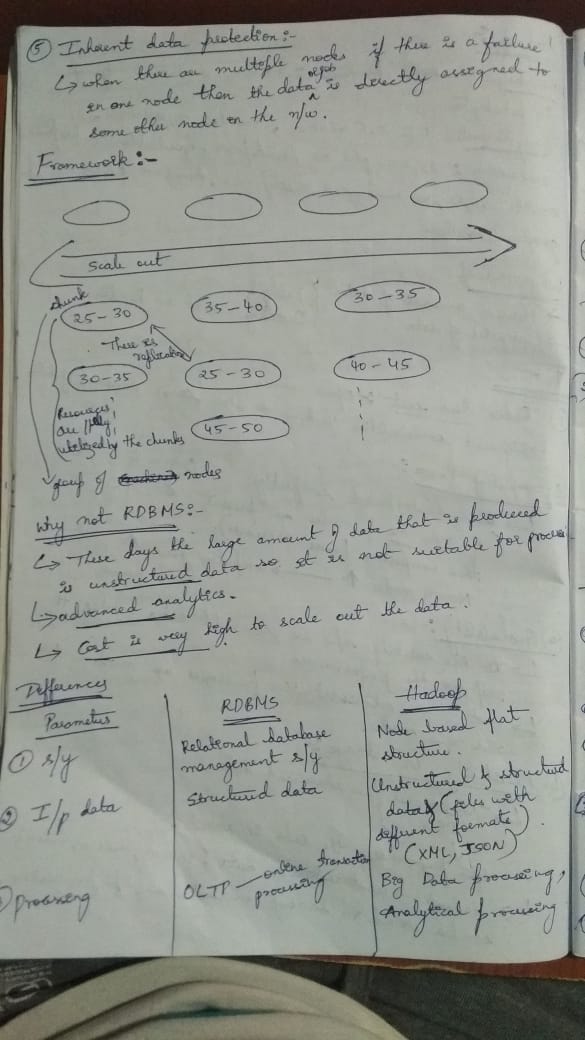 ⑤ Inherent data protection :-
↳ when there are multiple nodes if there is a failure
in one node then the data or job is directly assigned to
some other node in the n/w.
Framework :-
Scale out
chunk
25-30 35-40 30-35
There is
replication
30-35 25-30 40-45
Resources
are fully
utilized by the chunks
45-50
group of nodes
Why not RDBMS :-
↳ These days the large amount of data that is produced
is unstructured data so it is not suitable for
↳ advanced analytics.
↳ Cost is very high to scale out the data.
Differences
Parameters RDBMS Hadoop
① s/y Relational database Node based flat
management s/y structure.
② I/p data Structured data Unstructured & structured
data (files with
different formats)
(XML, JSON)
processing OLTP — online transaction Big Data processing,
processing Analytical processing